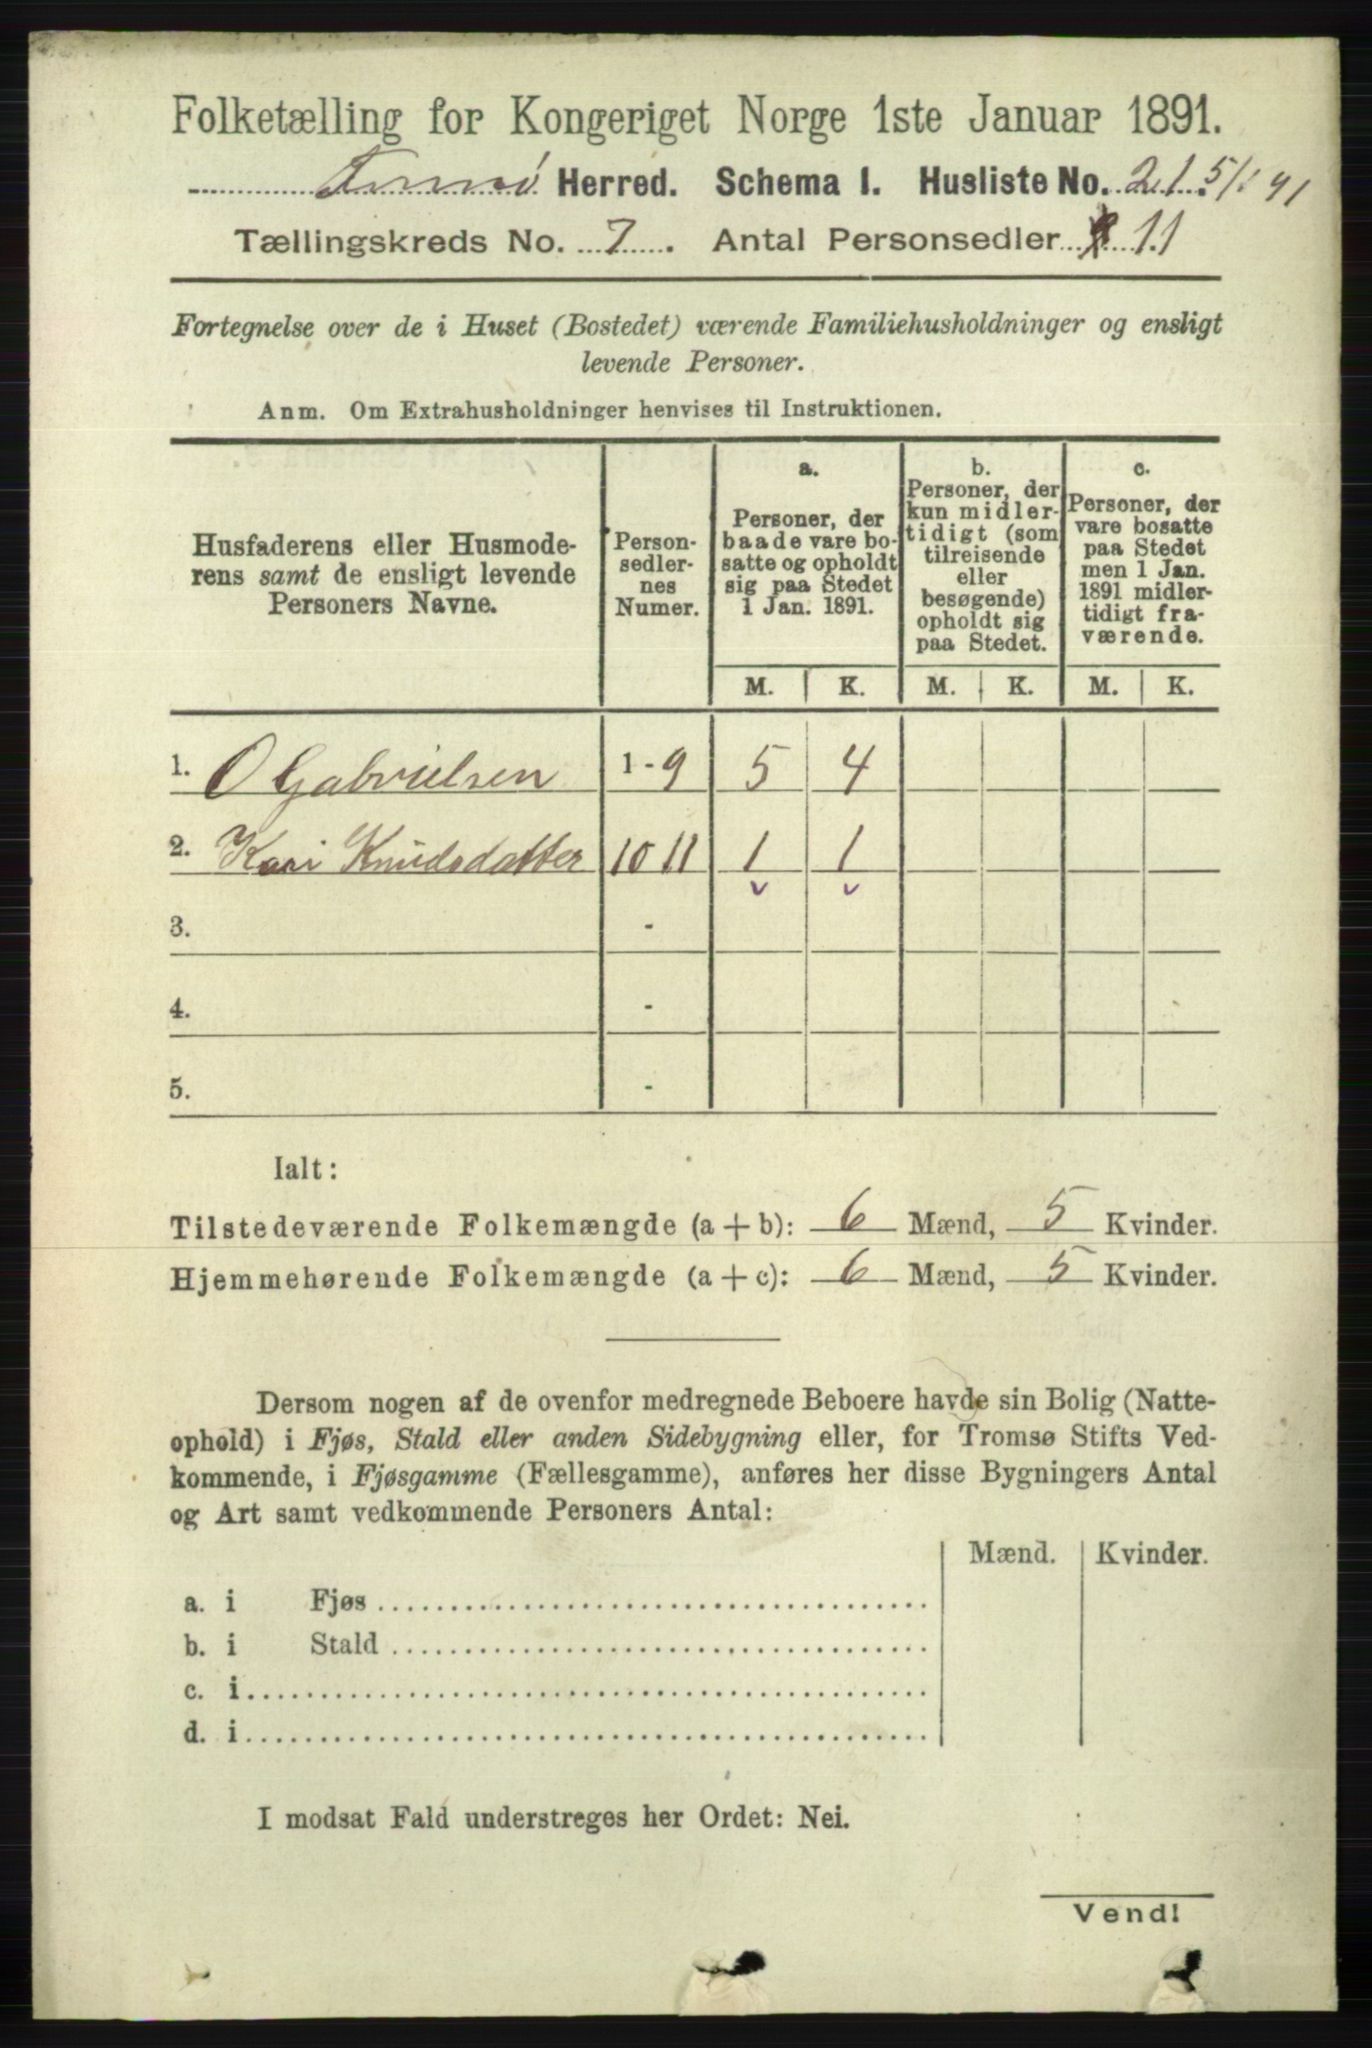 Folketælling for Kongeriget Norge 1ste Januar 1891.
Herred. Schema I. Husliste No. 21. 5/1 91
Tællingskreds No. 7. Antal Personsedler 11
Fortegnelse over de i Huset (Bostedet) værende Familiehusholdninger og ensligt
levende Personer.
Anm. Om Extrahusholdninger henvises til Instruktionen.
Husfaderens eller Husmode-
rens samt de ensligt levende
Personers Navne.
Person-
sedler-
nes
Numer.
a.
Personer, der
baade vare bo-
satte og opholdt
sig paa Stedet
1 Jan. 1891.
b.
Personer, der
kun midler-
tidigt (som
tilreisende
eller
besøgende)
opholdt sig
paa Stedet.
c.
Personer, der
vare bosatte
paa Stedet
men 1 Jan.
1891 midler-
tidigt fra-
værende.
M. K. M. K. M. K.
1. O Gabrielsen 1 - 9 5 4
2. Kari Knudsdatter 10 11 1 1
3. -
4. -
5. -
Ialt:
Tilstedeværende Folkemængde (a + b): 6 Mænd, 5 Kvinder.
Hjemmehørende Folkemængde (a + c): 6 Mænd, 5 Kvinder.
Dersom nogen af de ovenfor medregnede Beboere havde sin Bolig (Natte-
ophold) i Fjøs, Stald eller anden Sidebygning eller, for Tromsø Stifts Ved-
kommende, i Fjøsgamme (Fællesgamme), anføres her disse Bygningers Antal
og Art samt vedkommende Personers Antal:
Mænd. Kvinder.
a. i Fjøs
b. i Stald
c. i
d. i
I modsat Fald understreges her Ordet: Nei.
Vend!